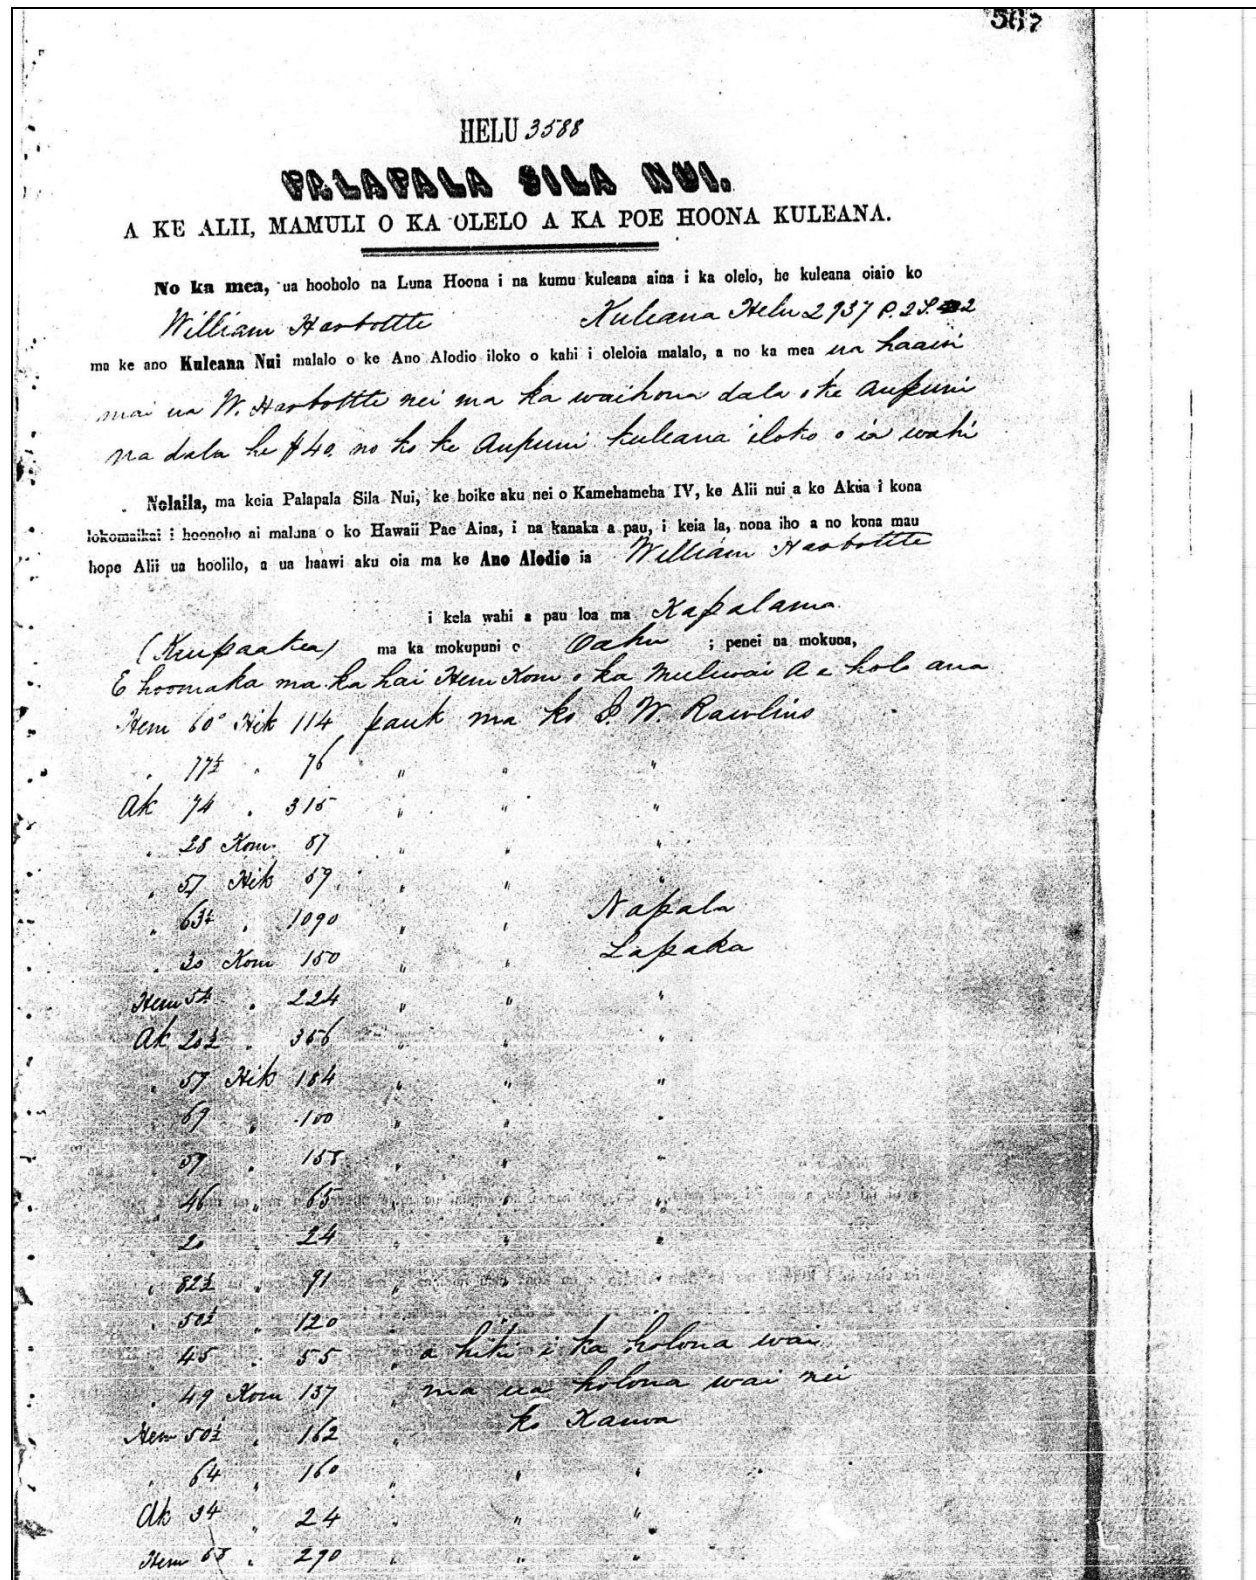 567
HELU 3588
PALAPALA SILA NUI.
A KE ALII, MAMULI O KA OLELO A KA POE HOONA KULEANA.
No ka mea, ua hooholo na Luna Hoona i na kumu kuleana aina i ka olelo, he kuleana oiaio ko
William Harbottle Kuleana Helu 2937 P. 2
ma ke ano Kuleana Nui malalo o ke Ano Alodio iloko o kahi i oleloia malalo, a no ka mea ua haawi
mai ua W. Harbottle nei ma ka waihona dala o ke Aupuni
na dala he $40. no ko ke Aupuni kuleana iloko o ia wahi
Nolaila, ma keia Palapala Sila Nui, ke hoike aku nei o Kamehameha IV, ke Alii nui a ke Akua i kona
lokomaikai i hoonoho ai maluna o ko Hawaii Pae Aina, i na kanaka a pau, i keia la, nona iho a no kona mau
hope Alii ua hoolilo, a ua haawi aku oia ma ke Ano Alodio ia William Harbottle
i kela wahi a pau loa ma Kapalama
ma ka mokupuni o Oahu ; penei na mokuna,
E hoomaka ma ka hai Hem Kom o ka muliwai A e holo ana
Hem 60° Hik 114 pauk ma ko W. Rawlins
" 77½ " 76 " " "
Ak 74 " 315 " " "
" 28 Kom 87 " " "
" 57 Hik 59 " " "
" 63½ " 1090 " " Napala
" 30 Kom 150 " " Lapaka
Hem 54 " 224 " " "
Ak 20½ " 356 " " "
" 57 Hik 184 " " "
" 69 " 100 " " "
" 59 " 158 " " "
" 46 " 65 " " "
" 20 " 24 " " "
" 82½ " 91 "
" 50½ " 120 "
" 45 " 55 " a hiki i ka holona wai
" 49 Kom 137 " ma ua holona wai nei
Hem 50½ " 162 " ko Kawa
" 64 " 160 " " "
Ak 34 " 24 " " "
Hem 58 " 290 " " "